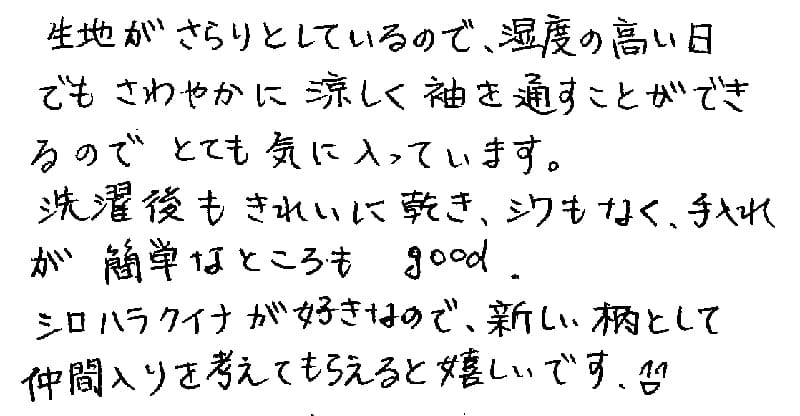 生地がさらりとしているので、湿度の高い日
でもさわやかに涼しく袖を通すことができ
るのでとても気に入っています。
洗濯後もきれいに乾き、シワもなく、手入れ
が簡単なところも good.
シロハラクイナが好きなので、新しい柄として
仲間入りを考えてもらえると嬉しいです。